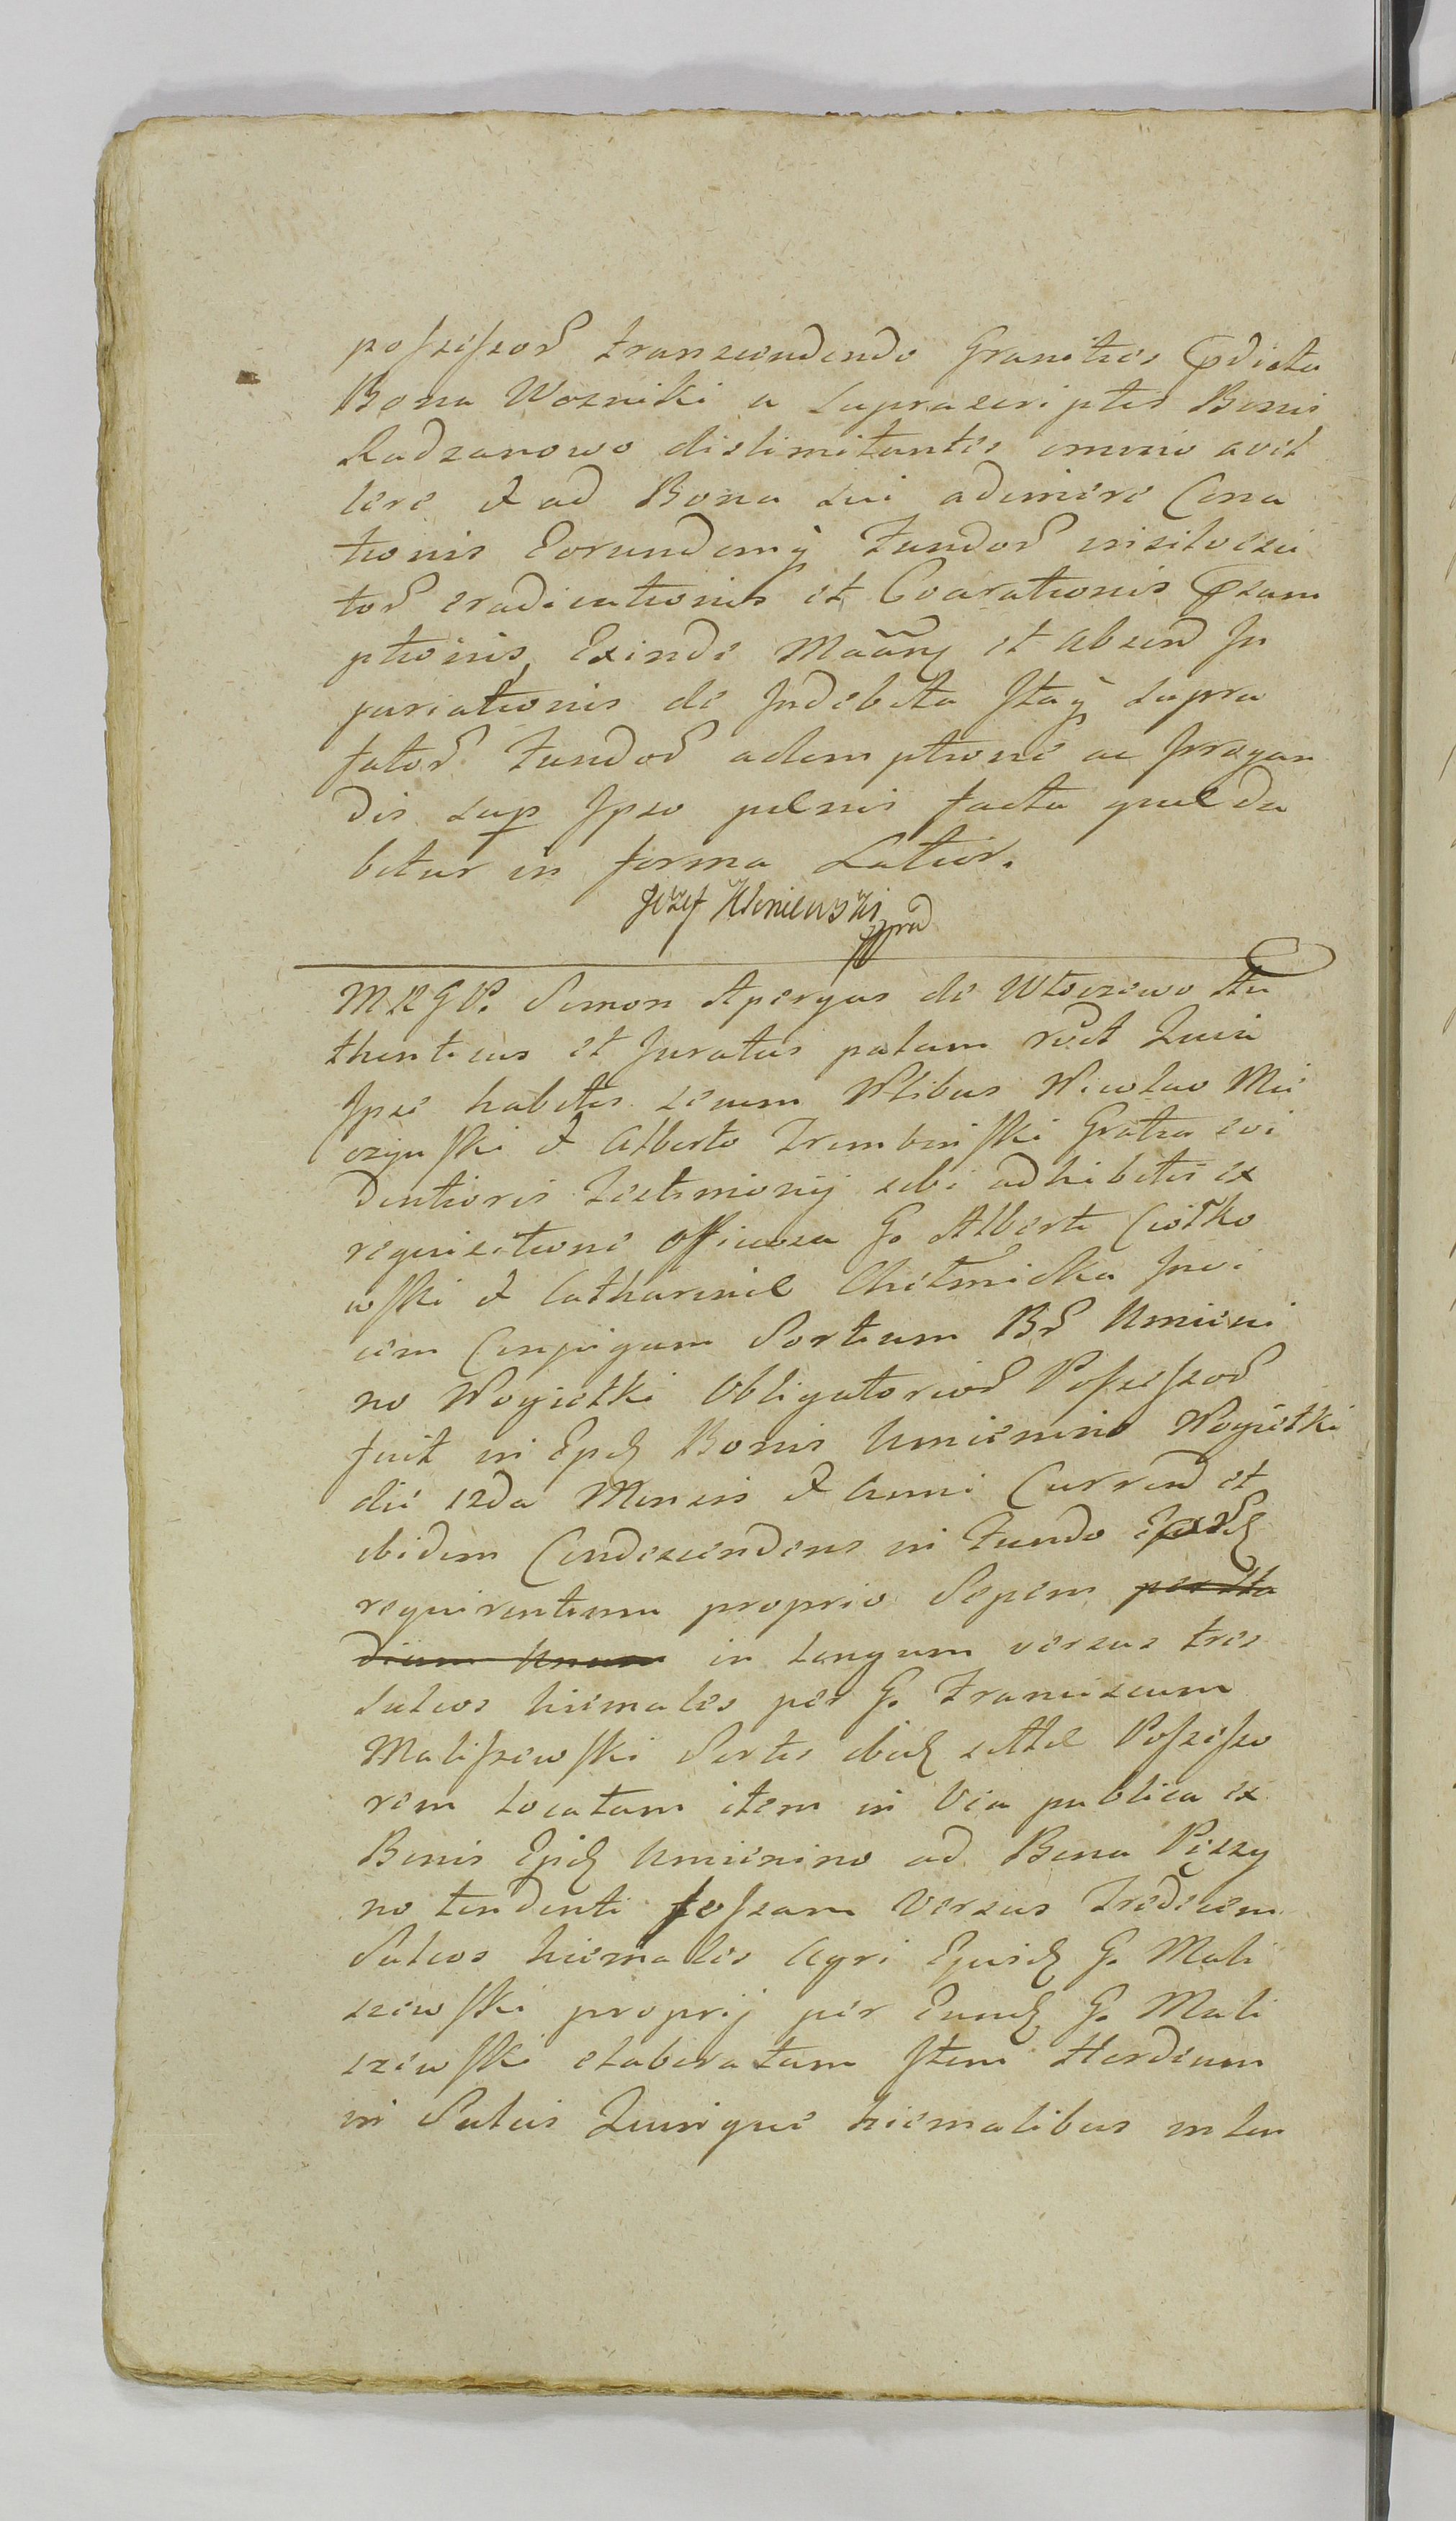 possessor transcendendo Granities pdicta
Bona Wozniki a suprascriptis Bonis
Radzanowo dislimitantes omnio avel
lere & ad Bona sui adimere Cona
tionis Eorundemq Fundor insitor
tor eradicationis et Coarationis psum
ptionis, Exinde et absend In
juriationis de Indebita Itaq supra
fator Fundor ademptione ac Irrogan
dis sup Ipso pœnis facta quæ da
bitur in forma Latior.
Józef Kloniewski
MRGP. Simon Apergas de Włoczewo Au
thenticus et Juratus palam rcvit Quia
Ipse habitis secum Nlibus Nicolao Mie
czyński & Alberto Trembinski Gratia evi
dentioris Testimonij sibi adhibitis ex
requisitione officiosa G. Alberti Ciołko
wski & Catharinæ Chełmicka Invi
cem Conjugum Sortium Br Umieni
no Woyciotki Obligatorior Possessor
fuit in Epd Bonis Umienino Woyciotki
die 12da Mensis & Anni Currend et
ibidem Condescendens in Fundo
requirentium proprio Sepem per Sta
dium Unum in longum versus tres
Sulcos hiemales per G. Franciscum
Maliszewski Sortis ibid alteræ Possesso
rem locatam item in Via publica ex
Bonis Epid Umienino ad Bona Piszczy
no tendenti fossam Versus Tredecem
Sulcos hiemales Agri Ejusd G. Mali
szewski proprij per Eund G. Mali
szewski elaboratam Item Hordeum
in Sulcis Quinque hiemalibus in lon